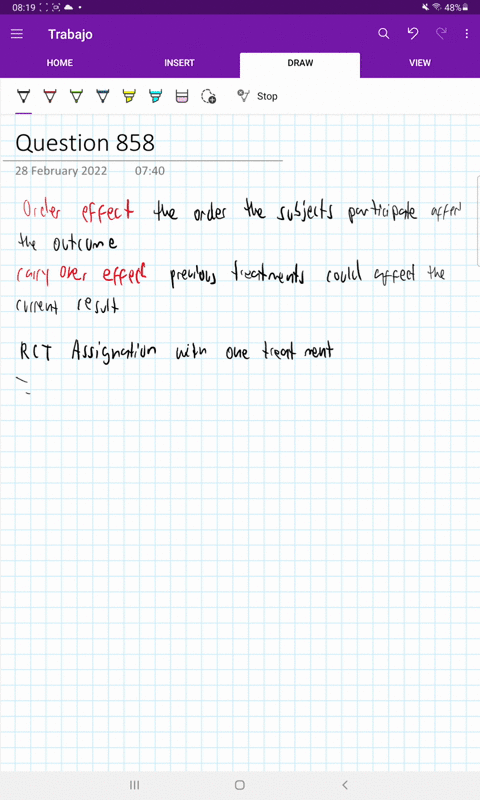 08:19 48%
Trabajo
HOME INSERT DRAW VIEW
Stop
Question 858
28 February 2022 07:40
Order effect the order the subjects participate affect
the outcome
carry over effect previous treatments could affect the
current result
RCT Assignation with one treatment